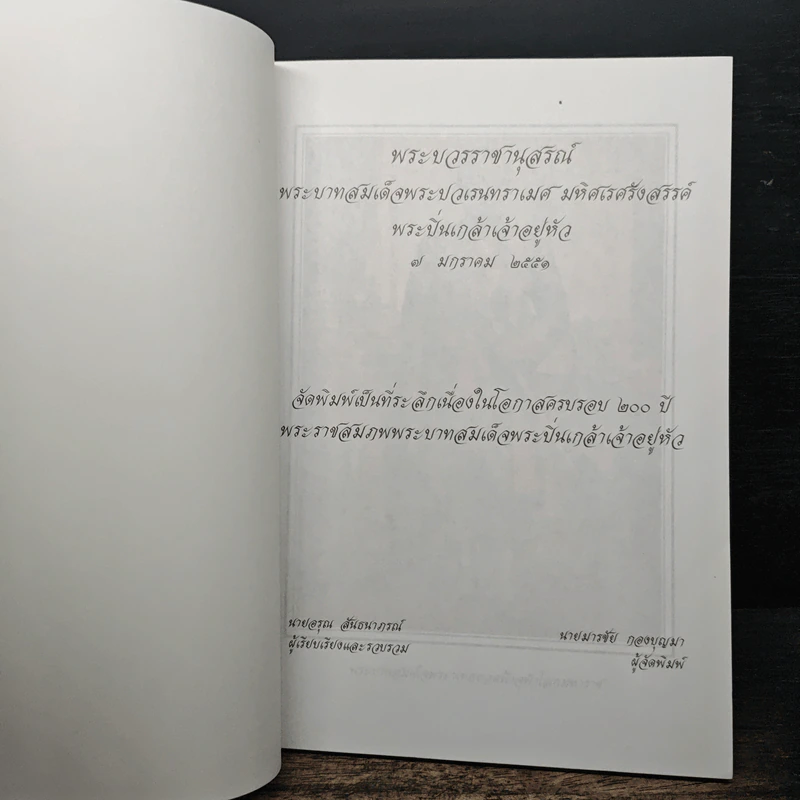 พระบวรราชานุสรณ์
พระบาทสมเด็จพระปวเรนทราเมศ มหิศเรศรังสรรค์
พระปิ่นเกล้าเจ้าอยู่หัว
๗ มกราคม ๒๕๕๑
จัดพิมพ์เป็นที่ระลึกเนื่องในโอกาสครบรอบ ๒๐๐ ปี
พระราชสมภพพระบาทสมเด็จพระปิ่นเกล้าเจ้าอยู่หัว
นายอรุณ สันธนาภรณ์
ผู้เรียบเรียงและรวบรวม
นายมารชัย กองบุญมา
ผู้จัดพิมพ์